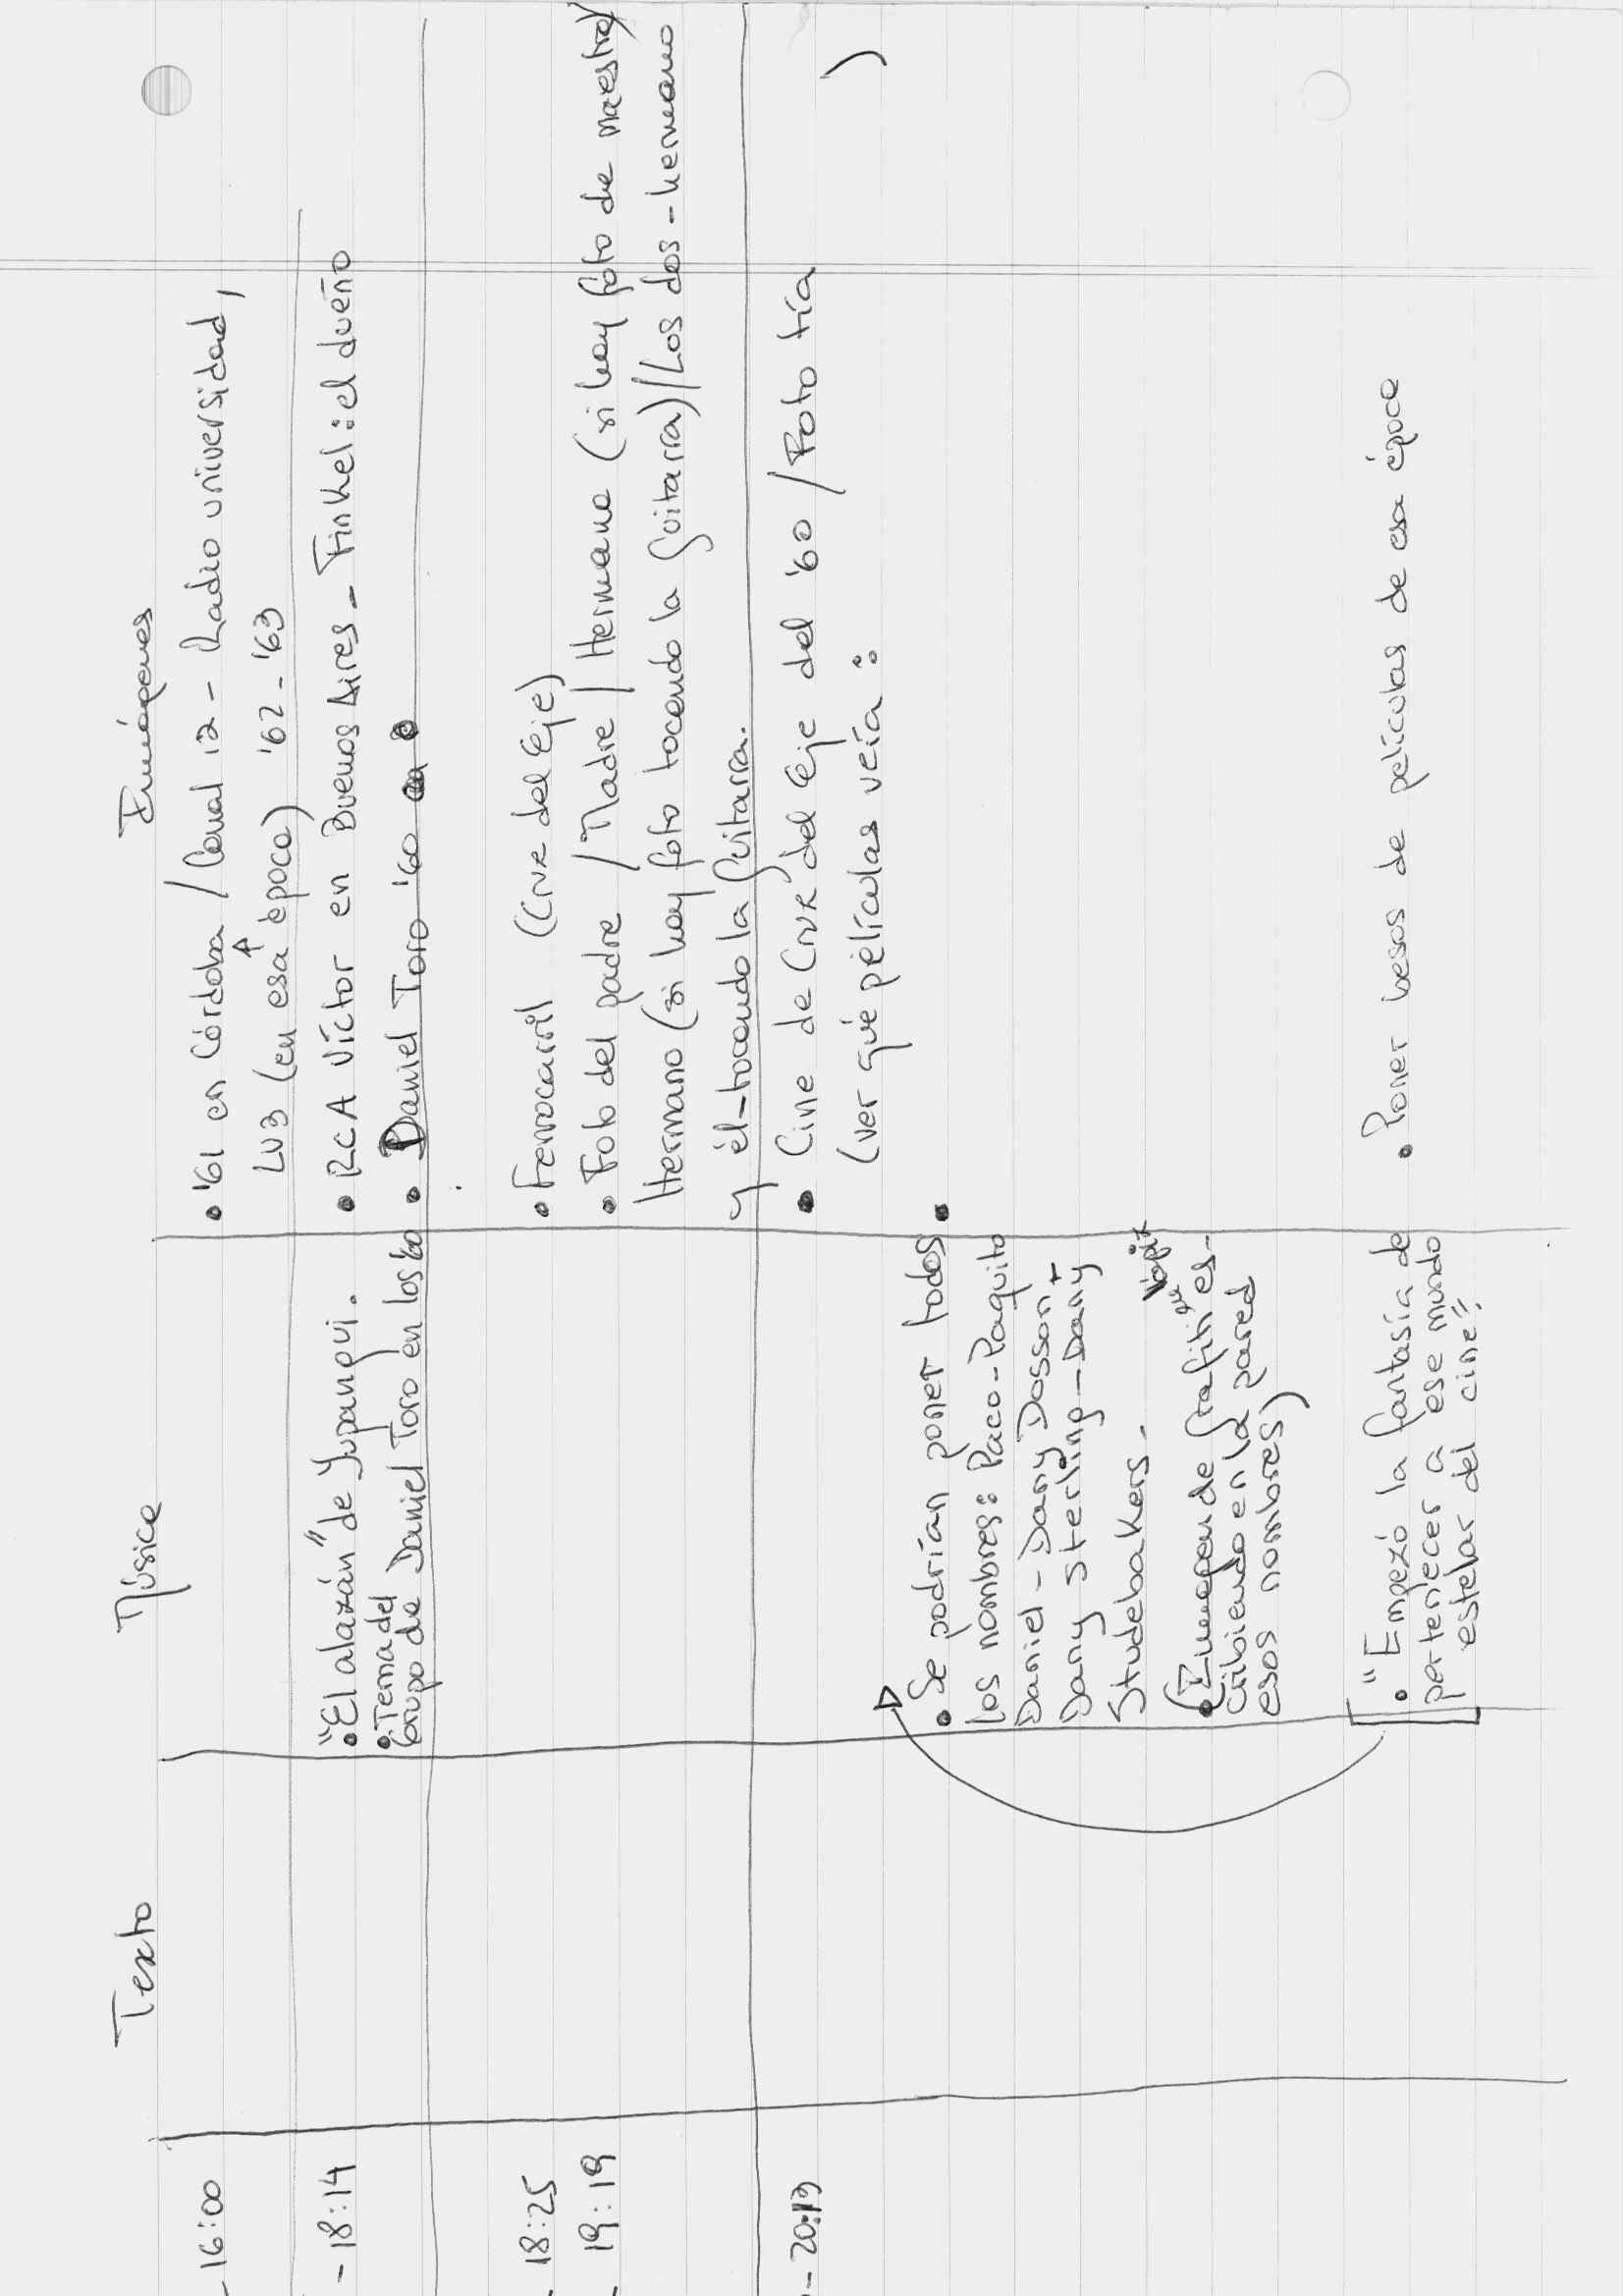 Texto Música Imágenes
- 16:00 • '61 en Córdoba / Canal 12 - Radio Universidad,
LV3 (en esa época) '62 - '63
- 18:14 • "El alazán" de Yupanqui. • RCA Víctor en Buenos Aires - Finkel: el dueño
• Tema del
Grupo de Daniel Toro en los '60 • Daniel Toro '60
- 18:25 • Ferrocarril (Cruz del Eje)
- 19:19 • Foto del padre / Madre / Hermana (si hay foto de maestra)/
Hermano (si hay foto tocando la guitarra) / Los dos - hermano
y él - tocando la guitarra.
- 20:19 • Cine de Cruz del Eje del '60 / Foto tía
(ver qué películas veía: )
• Se podrían poner todos •
los nombres: Paco - Paquito
Daniel - Dany Dosson -
Dany Sterling - Dany +
Studebakers.
• (Imagen de grafiti es-
cribiendo en la pared
esos nombres)
• "Empezó la fantasía de • Poner besos de películas de esa época
pertenecer a ese mundo
estelar del cine".